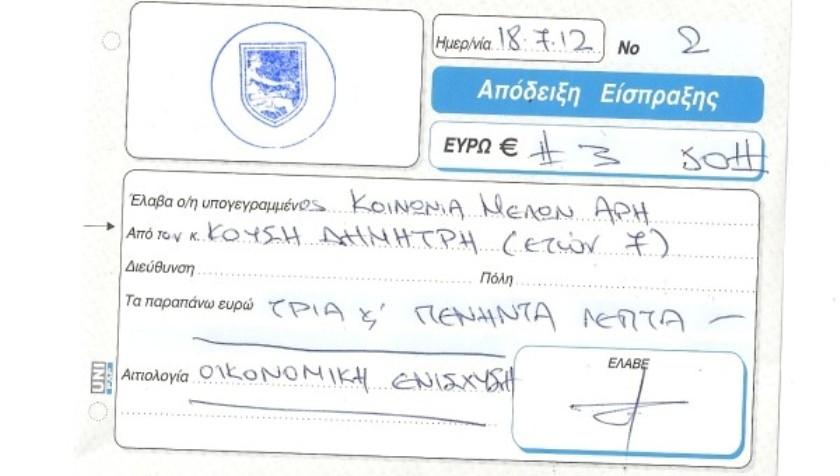 Ημερ/νία 18.7.12 Νο 2
Απόδειξη Είσπραξης
ΕΥΡΩ € # 3 50#
Έλαβα ο/η υπογεγραμμένος ΚΟΙΝΩΝΙΑ ΜΕΛΩΝ ΑΡΗ
Από τον κ. ΚΟΥΣΗ ΔΗΜΗΤΡΗ (ετών 7)
Διεύθυνση Πόλη
Τα παραπάνω ευρώ ΤΡΙΑ & ΠΕΝΗΝΤΑ ΛΕΠΤΑ –
Αιτιολογία ΟΙΚΟΝΟΜΙΚΗ ΕΝΙΣΧΥΣΗ
ΕΛΑΒΕ
UNI PAP